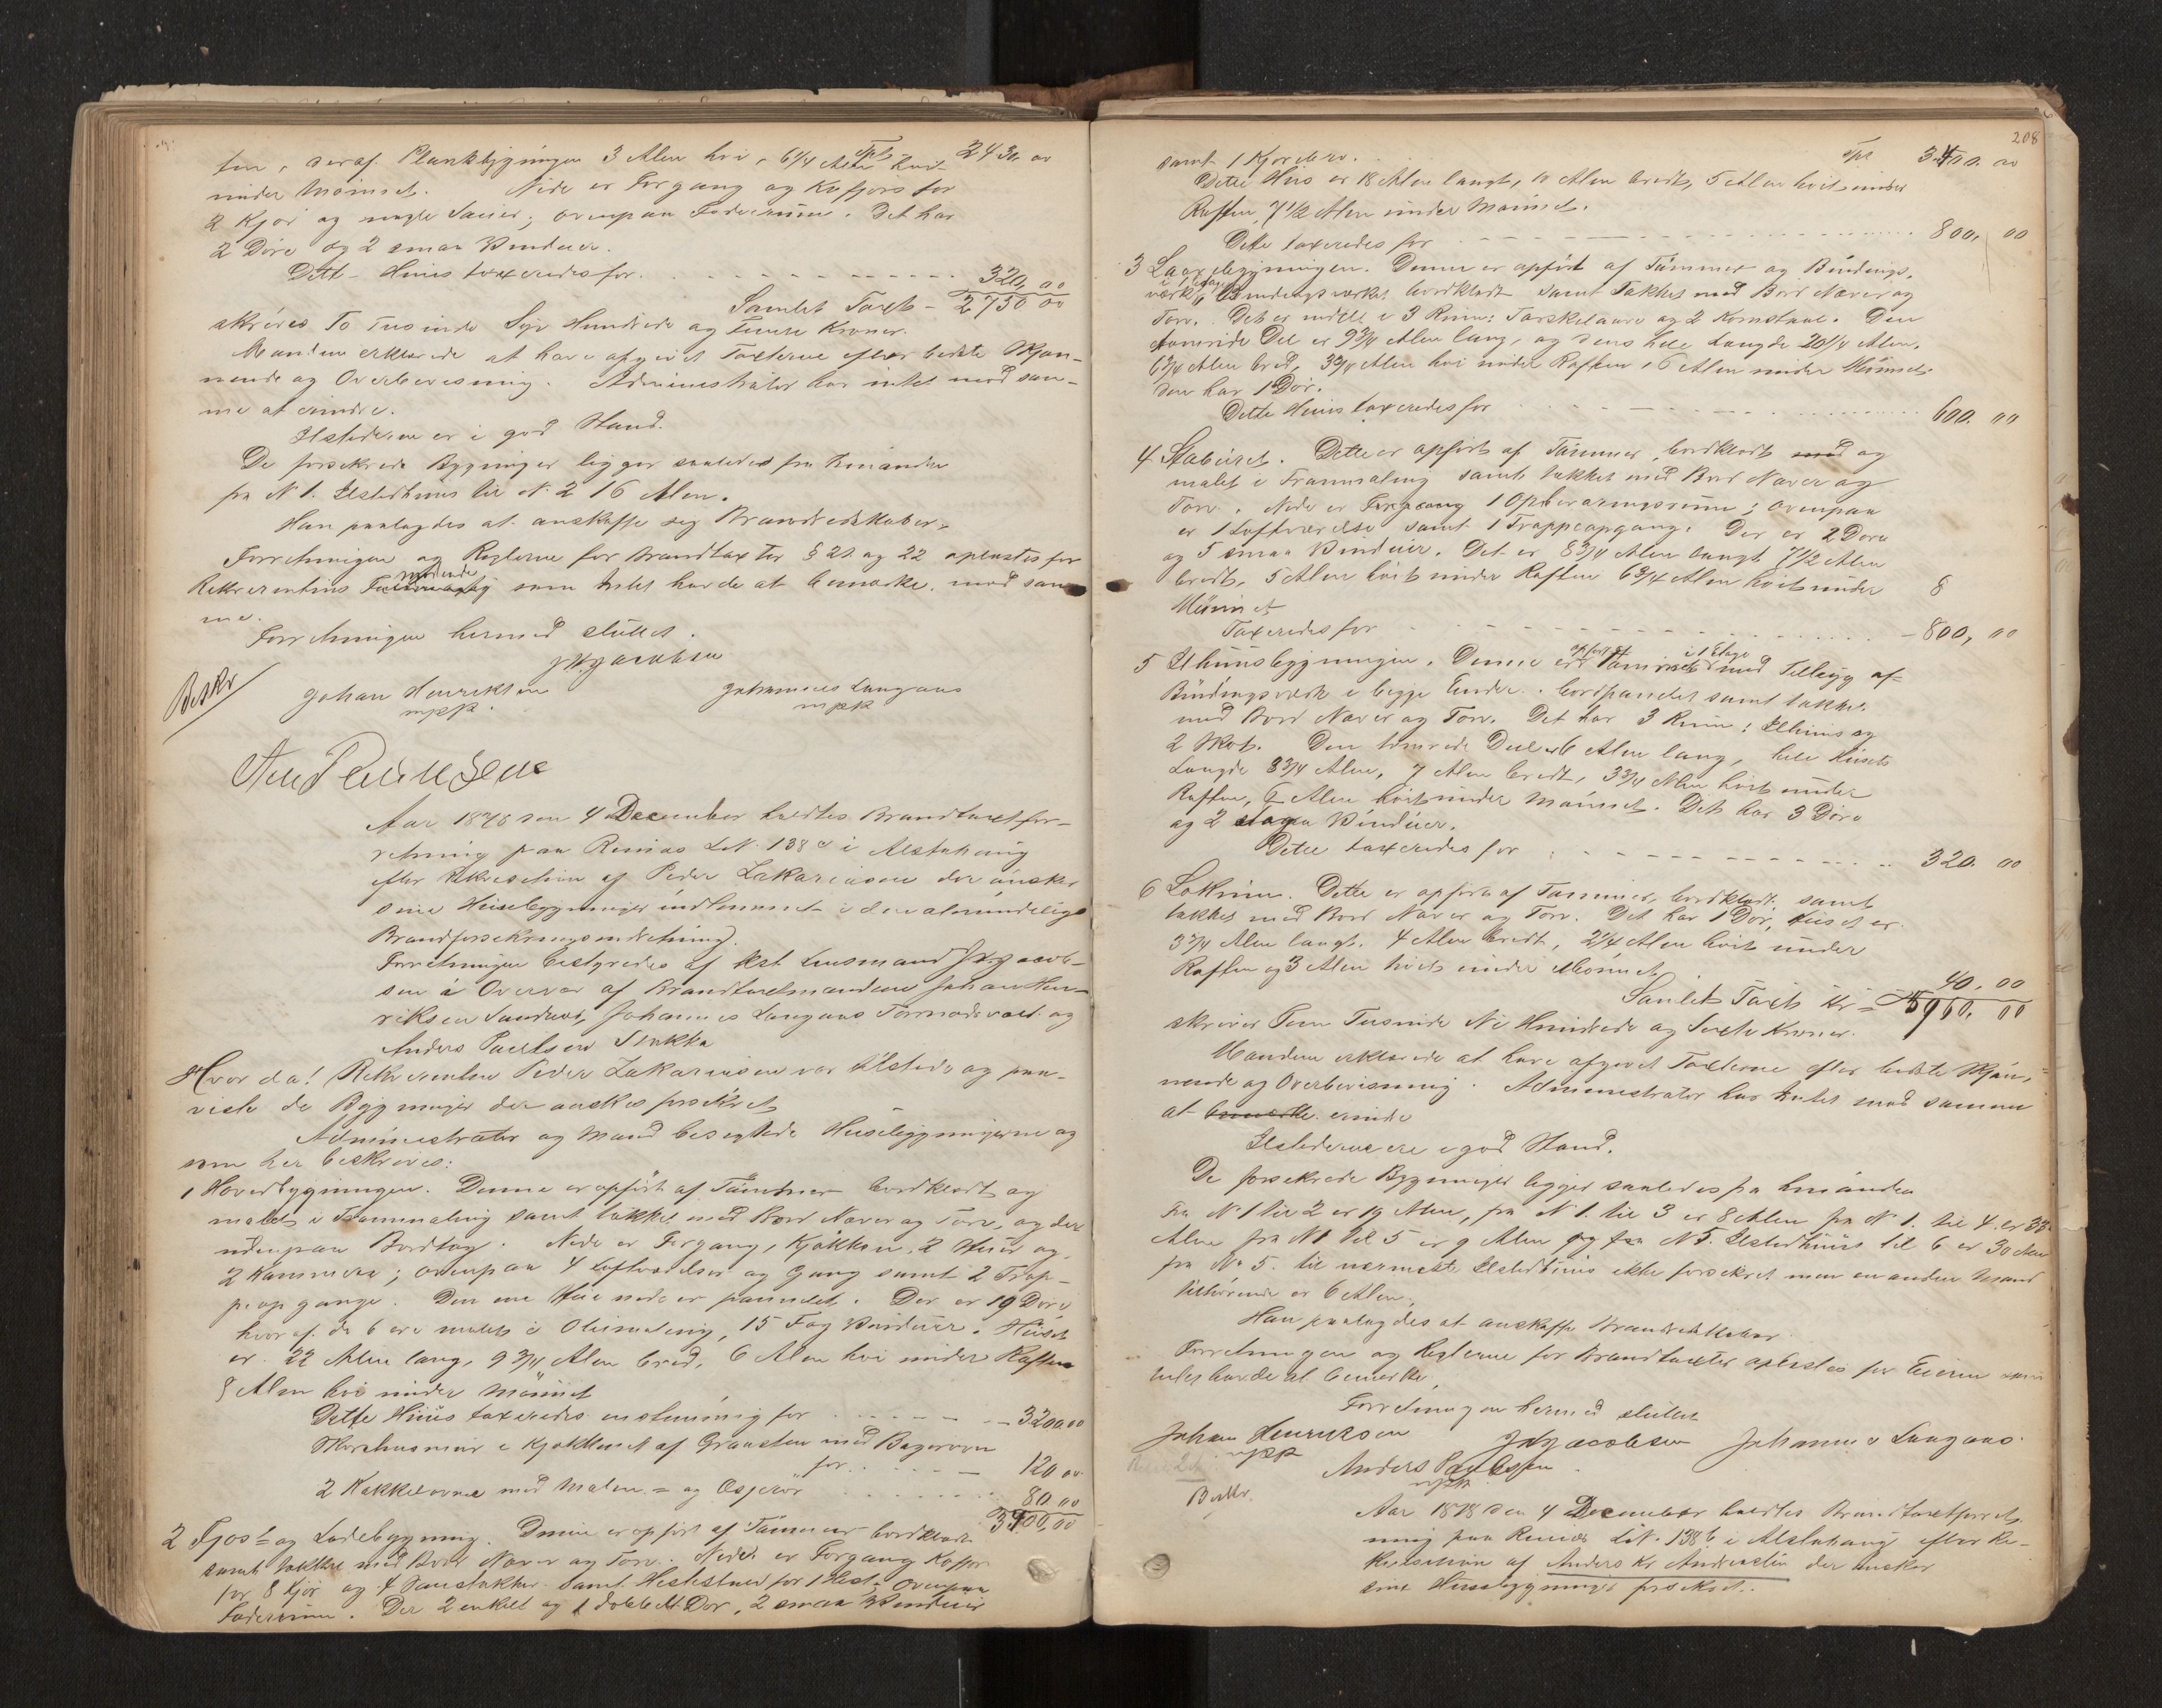 ten, deraf Plankbygningen 3 Alen høi, 6 1/4 Alen høit Tpt 2430. 00
under Mønnet. Nede er Forgang og Kofjøs for
2 Kjør og nogle Sauer; ovenpaa Foderrum. Det har
2 Døre og 2 smaa Vinduer.
Dette Huus taxeredes for. 320, 00
Samlet Taxt - 2750 00
skrives To Tusinde Syv Hundrede og Femti Kroner.
Mændene erklærede at have afgivet Taxterne efter bedste Skjøn-
nende og Overbevisning. Administrator har intet mod sam-
me at erindre.
Ildstederne er i god Stand.
De forsekrede Bygninger ligger saaledes fra hinanden
fra N 1. Ildsted huus til N. 2 16 Alen.
Han paalagdes at anskaffe sig Brandredskaber.
Forretningen og Reglerne for Brandtaxter § 21 og 22 oplæstes for
Rekvirentens som Intet havde at bemærke. mod sam-
me.
Forretningen hermed sluttet.
JHJacobsen
Beskr
Johan Henriksen
mpp.
Johannes Langaas
mpk
Aar 1878 den 4 December holdtes Brandtaxtfor-
retning paa Remnæs LN. 138 a i Alstahaug
efter Rekvisition af Peder Zakariasen der ønsker
sine Huusbygninger indlemmet i den almindelige
Brandforsekringsindretning.
Forretningen bestyredes af kst Lensmand JHJacob-
sen i Overvær af Brandtaxtmændene Johan Hen-
riksen Sandnes, Johannes Langaas og
Anders Paulsen Stokka
Hvor da! Rekvirenten Peder Zakariasen var tilstede og paa-
viste de Bygninger der ønskes forsikret
Administrator og Mænd besigtede Huusbygningerne og
som her beskrives:
1 Hovedbygningen. Denne er opført af Tømmer bordklædt og
malet i Tranmaling samt tækket med Bord Næver og Torv, og der
udenpaa Bordtag. Nede er Forgang, Kjøkken, 2 Stuer og
2 Kammere; ovenpaa 4 Loftværelser og Gang samt 2 Trap-
peopgange. Den ene Stue nede er panelet. Der er 19 Døre
hvoraf de 6 ere malet i Oliemaling, 15 Fag Vinduer. Huset
er 22 Alen lang, 9 3/4 Alen bred, 6 Alen høi under Raften
8 Alen høi under Mønnet
Dette Huus taxeredes enstemmig for - 3200 00
Skorstensmur i Kjøkkenet af Graasten med Bagerovn
for - 120 00
2 Kakkelovne med Malm = og Osperør 80 00
3400,00
2 Fjøs= og Ladebygning. Denne er opført af Tømmer bordklædt
samt tækket med Bord Næver og Torv. Nede er Forgang Kofjøs
for 8 Kjør og 4 Saustakker samt Heststald for 1 Hest; Ovenpaa
Foderrum. Der 2 enkelt og 1 dobbelt Dør, 2 smaa Vinduer
208
samt 1 Kjørebro. Tpt 3400. 00
Dette Huus er 18 Alen langt, 10 Alen bredt, 5 Alen høit under
Raften, 7 1/2 Alen under Mønnet.
Dette taxeredes for 800, 00
3 Laavebygningen. Denne er opført af Tømmer og Bindings-
værk i 1 Etage, Bindingsværket bordklædt samt Tækket med Bord Næver og
Torv. Det er inddelt i 3 Rum: Tærskelaave og 2 Kornstaal. Den
tømrede Del er 9 3/4 Alen lang, og dens hele Længde 20 1/4 Alen.
6 3/4 Alen bred, 3 3/4 Alen høi under Raften, 6 Alen under Mønnet.
den har 1 Dør.
Dette Huus taxeredes for 600. 00
4 Staburet. Dette er opført af Tømmer, bordklædt med og
malet i Tranmaling samt tækket med Bord Næver og
Torv. Nede er Forgang 1 Opbevaringsrum; ovenpaa
er 1 Loftværelse samt 1 Trappeopgang. Der er 2 Døre
og 5 smaa Vinduer. Det er 8 3/4 Alen langt 7 1/2 Alen
bredt, 5 Alen høit under Raften 6 3/4 Alen høit under 8
Mønnet
Taxeredes for - 800, 00
5 Ildhuusbygningen. Denne er opført af Tømmer i 1 Etage med Tilbyg af
Bindingsværk i begge Ender. bordpanelet samt tækket
med Bord Næver og Torv. Det har 3 Rum: Ildhuus og
2 Skot. Den tømrede Del er 6 Alen lang, hele Husets
Længde 8 3/4 Alen, 7 Alen bredt, 3 3/4 Alen høit under
Raften, 6 Alen høit under Mønnet. Det har 3 Døre
og 2 Vinduer.
Dette taxeredes for 320. 00
6 Lokrum. Dette er opført af Tømmer, bordklædt. samt
tækket med Bord Næver og Torv. Det har 1 Dør, Huset er
3 3/4 Alen langt. 4 Alen bredt, 2 1/4 Alen høit under
Raften og 3 Alen høit under Mønnet. 40. 00
Samlet Taxt Kr = 5960. 00
skriver Fem Tusinde Ni Hundrede og Sexti Kroner.
Mændene erklærede at have afgivet Taxterne efter bedste Skjøn-
nende og Overbevisning. Administrator har Intet mod samme
at bemærke erindre
Ildstederne ere i god Stand.
De forsekrede Bygninger ligger saaledes fra hinanden
Fra N 1 til 2 er 19 Alen, fra N 1. til 3 er 8 Alen fra N 1. til 4. er 38
Alen fra N 1 til 5 er 9 Alen og fra N 5. Ildstedhuus til 6 er 30 Alen
fra No 5. til nærmeste Ildstedhuus ikke forsekret men en anden Mand
tilhørende er 6 Alen.
Han paalagdes at anskaffe Brandredskaber.
Forretningen og Reglerne for Brandtaxter oplæstes for Eieren som
Intet havde at bemærke.
Forretningen hermed sluttet
Johan Henriksen
mpp
JHJacobsen Johannes Langaas.
Anders Paulsen
mpk
Beskr.
Aar 1878 den 4 December holdtes Brandtaxtforret-
ning paa Remnæs LN. 138 b i Alstahaug efter Re-
kvisition af Anders Kr Andersen der ønsker
sine Huusbygninger forsikret.